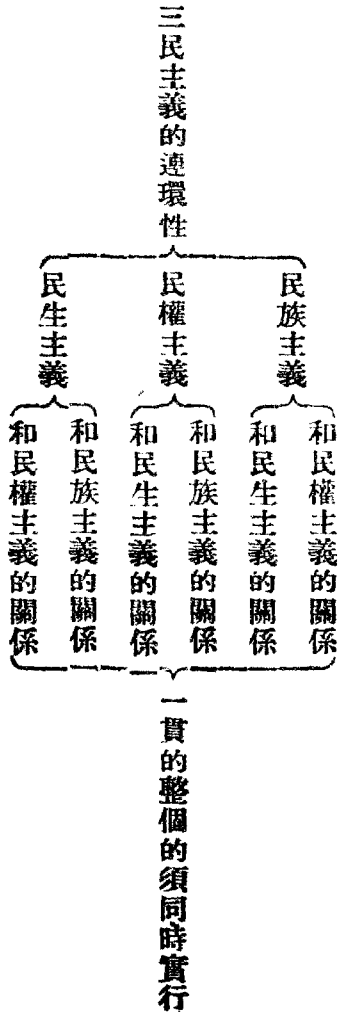 三民主義的連環性
民族主義
和民權主義的關係
和民生主義的關係
民權主義
和民族主義的關係
和民生主義的關係
民生主義
和民族主義的關係
和民權主義的關係
一貫的整個的須同時實行